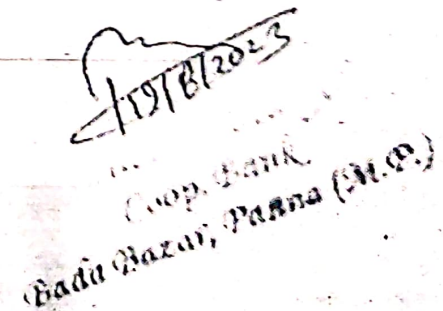 19/8/2023
Coop. Bank
Bada Bazar, Panna (M.P.)